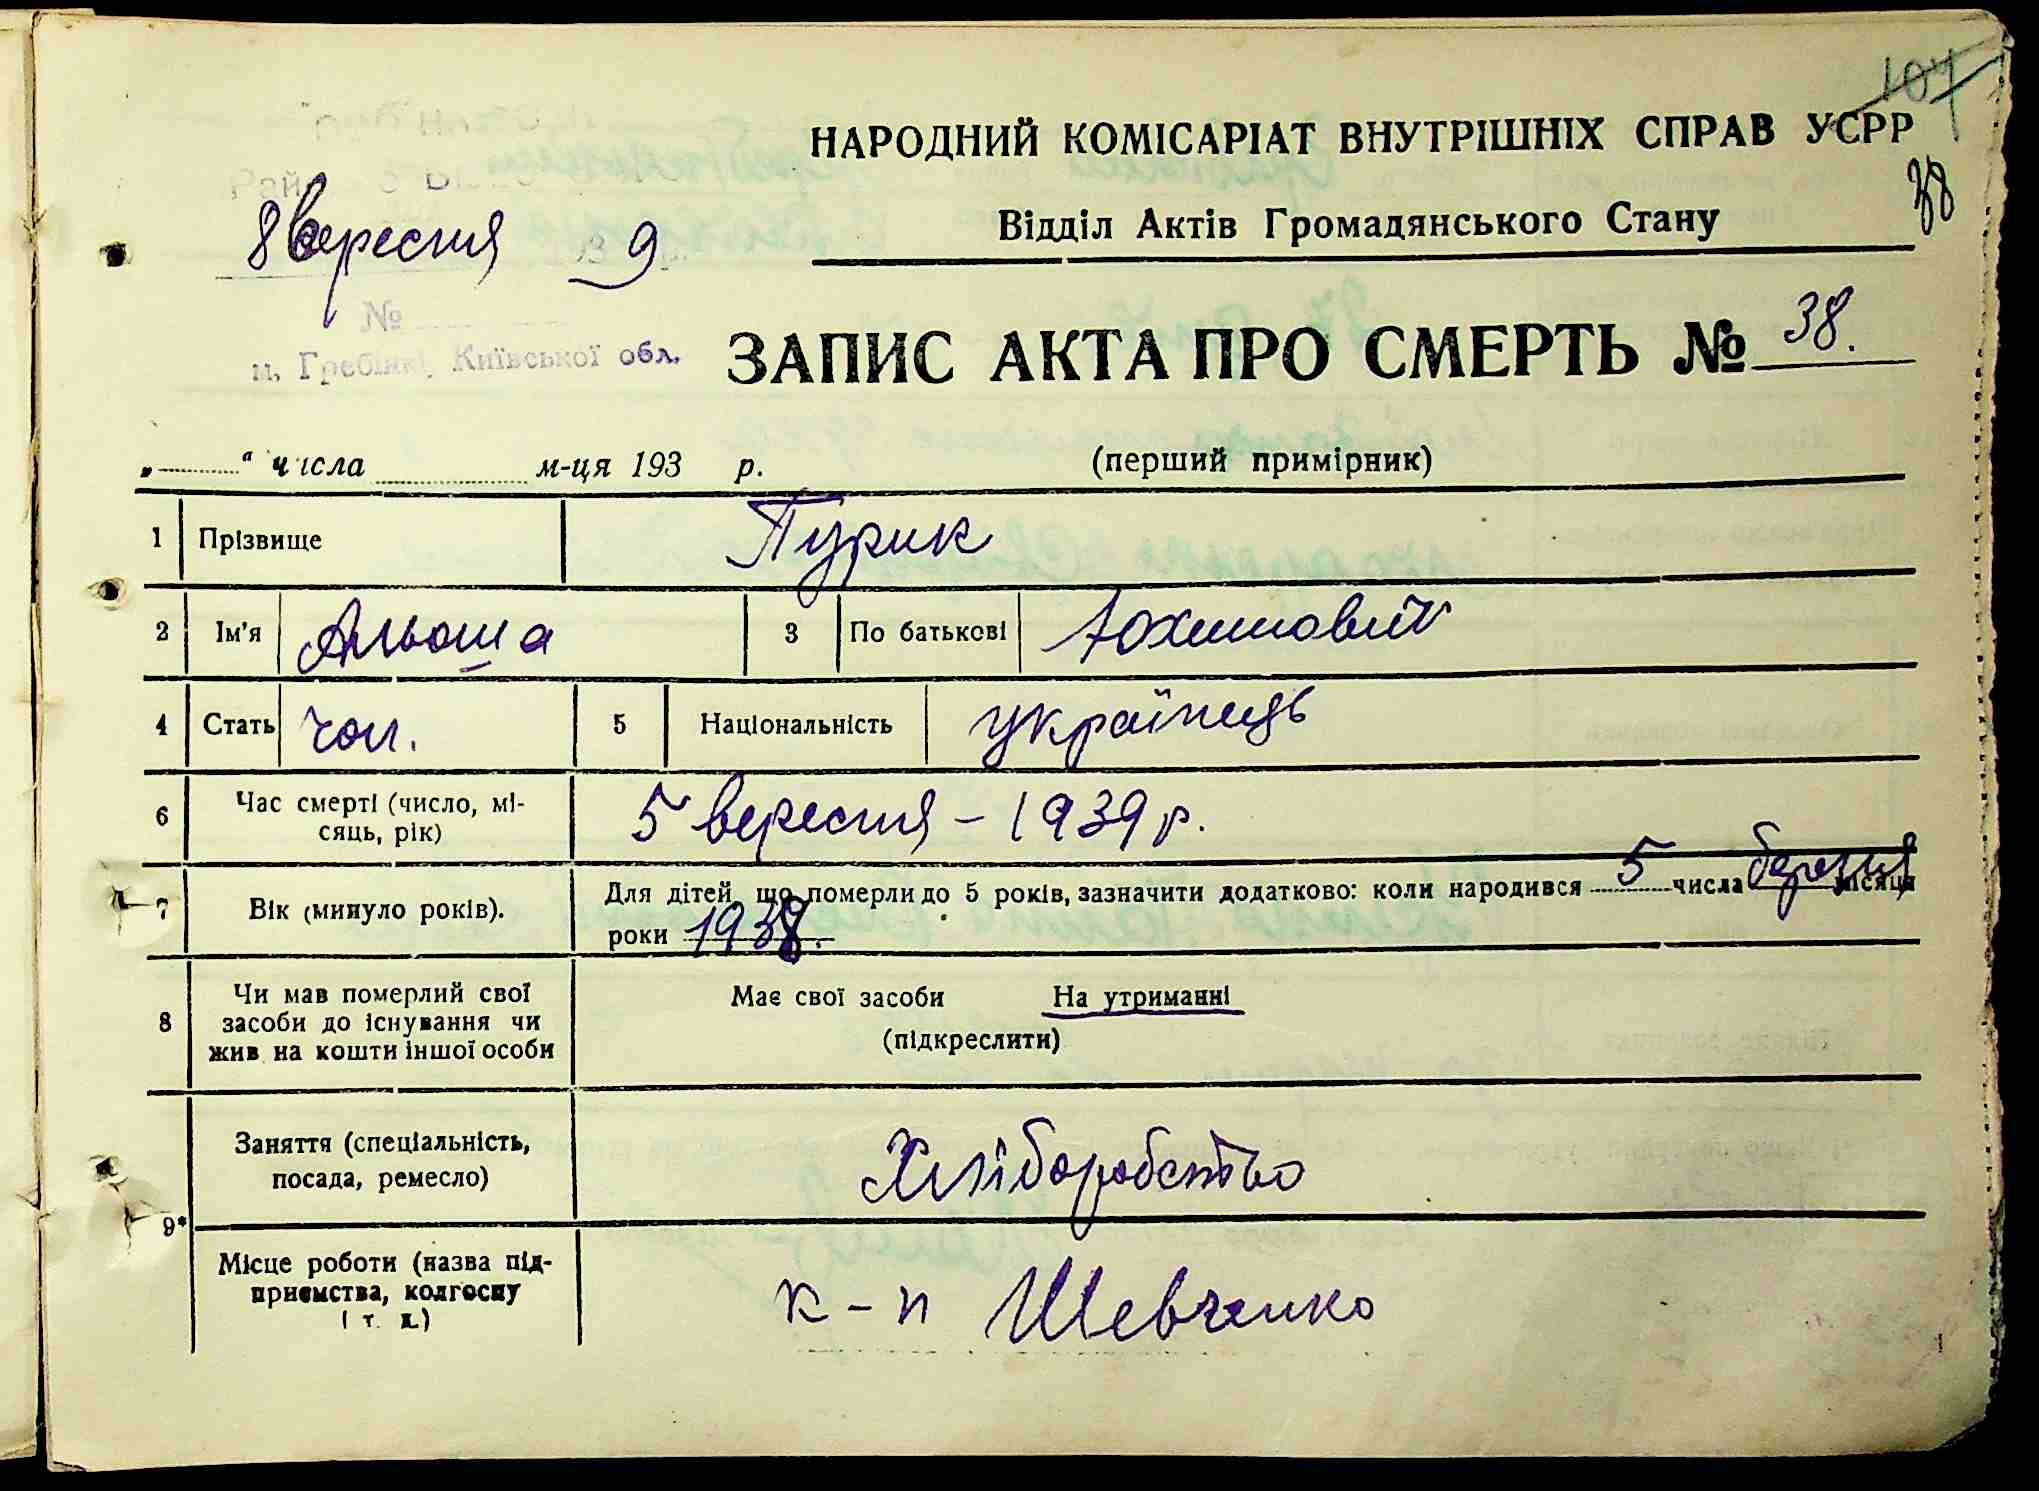 104
НАРОДНИЙ КОМІСАРІАТ ВНУТРІШНІХ СПРАВ УСРР
38
Відділ Актів Громадянського Стану
8 вересня 9
№
м. Гребінкі, Київської обл.
ЗАПИС АКТА ПРО СМЕРТЬ № 38.
„ " числа м-ця 193 р.
(перший примірник)
1 Прізвище Пурик
2 Ім'я Альоша 3 По батькові Юхимович
4 Стать чол. 5 Національність українець
6 Час смерті (число, мі-
сяць, рік)
5 вересня - 1939 р.
7 Вік (минуло років).
Для дітей, що померли до 5 років, зазначити додатково: коли народився 5 числа березня місяця
роки
8 Чи мав померлий свої
засоби до існування чи
жив на кошти іншої особи
Має свої засоби На утриманні
(підкреслити)
9* Заняття (спеціальність,
посада, ремесло)
Хліборобство
Місце роботи (назва під-
приємства, колгоспу
і т. д.)
к-п Шевченко